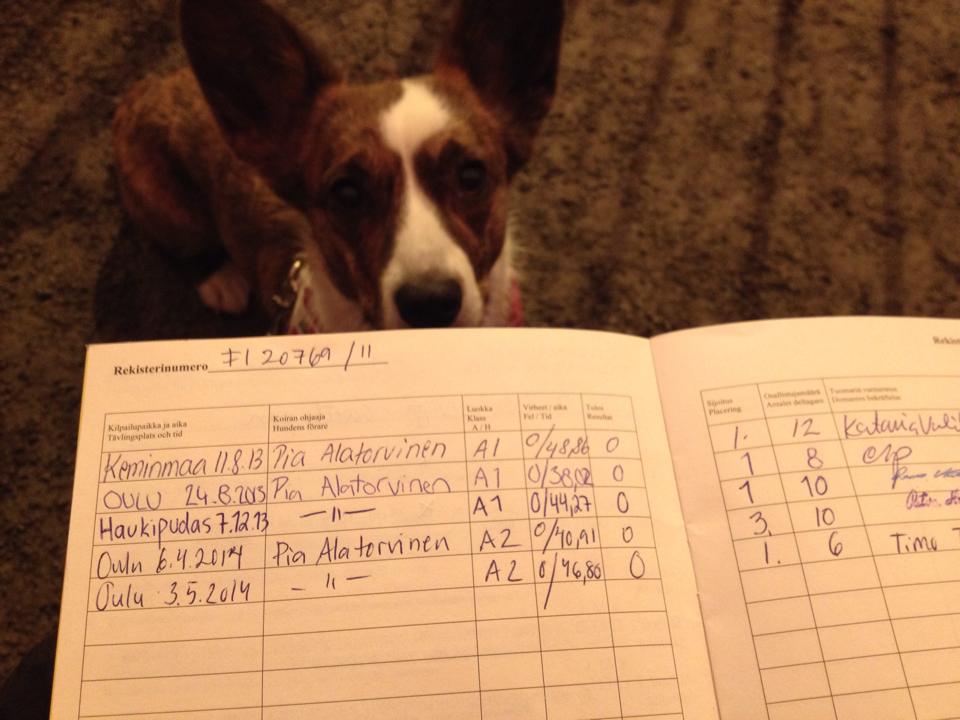 Rekisterinumero FI 20769/11
Kilpailupaikka ja aika
Tävlingsplats och tid
Koiran ohjaaja
Hundens förare
Luokka
Klass
A / H
Virheet / aika
Fel / Tid
Tulos
Resultat
Keminmaa 11.8.13 Pia Alatorvinen A1 0/48,86 0
OULU 24.8.2013 Pia Alatorvinen A1 0/38,02 0
Haukipudas 7.12.13 —"— A1 0/44,27 0
Oulu 6.4.2014 Pia Alatorvinen A2 0/40,91 0
Oulu 3.5.2014 —"— A2 0/46,86 0
Sijoitus
Placering
Osallistujamäärä
Antalet deltagare
Tuomarin vahvistus
Domarens bekräftelse
1. 12
1 8
1 10
3. 10
1. 6 Timo